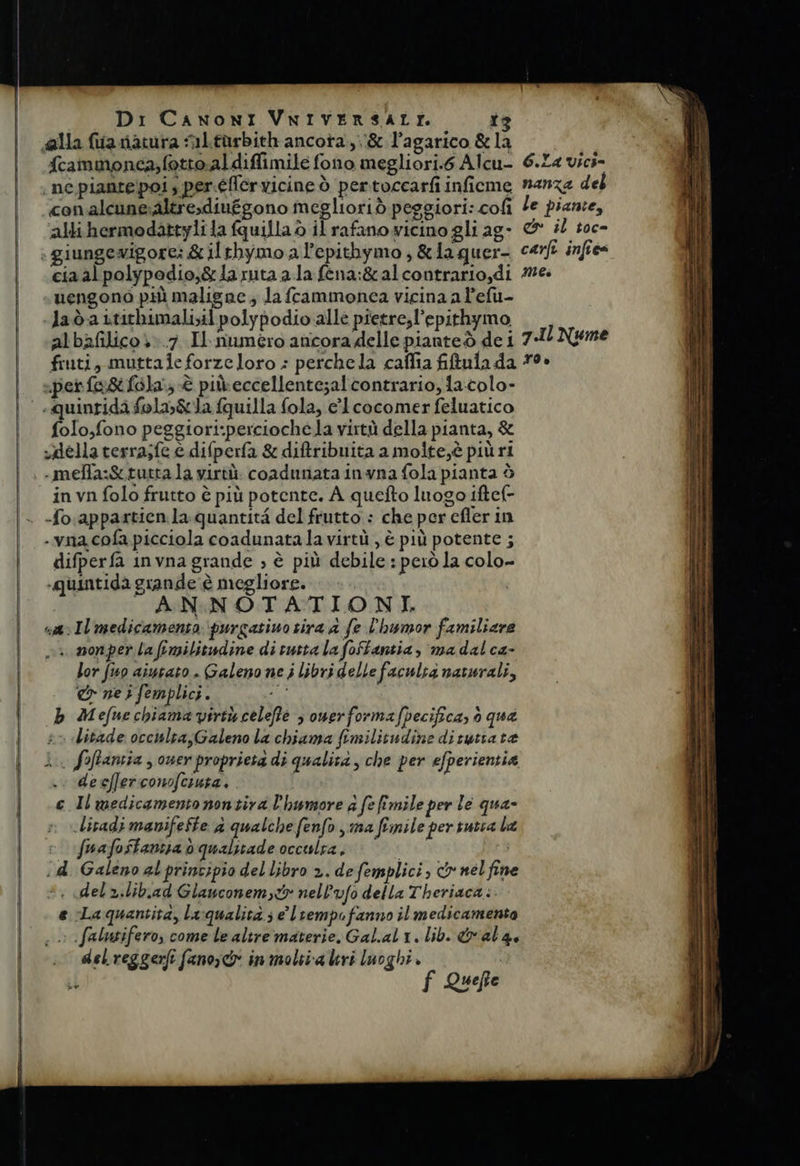 DI CANONI VNIVERSALI. 13
alla ſua natura: al turbith ancora, & l'agarico & la
ſcammonea, ſotto al diſſimile ſono megliori. 6 Alcu-
ne piante poi, per eſſer vicine ò per toccarſi inſieme
con alcune altre, diuẽgono megliori ò peggiori: coſi
alli hermodattyli la ſquilla ò il rafano vicino gli ag-
giunge vigore: & il thymo a l'epithymo, & la quer-
cia al polypodio, & la ruta a la ſena: & al contrario, di
uengono più maligne, la ſcammonea vicina a l'eſu-
la ò a i tithimali, il polypodio alle pietre, l'epithymo
al baſilico. 7 Il numero ancora delle piante ò de i
fruti, muttale forze loro: perche la caſſia fiſtula da
per ſe & ſola, è più eccellente; al contrario, la colo-
quintida ſola, & la ſquilla ſola, e'l cocomer ſeluatico
ſolo, ſono peggiori: percioche la virtù della pianta, &
della terra, ſe è diſperſa & diſtribuita a molte, è più ri
meſſa: & tutta la virtù coadunata in vna ſola pianta ò
in vn ſolo frutto è più potente. A queſto luogo iſteſ-
ſo appartien la quantitá del frutto: che per eſſer in
vna coſa picciola coadunata la virtù, è più potente;
diſperſa in vna grande, è più debile: però la colo-
quintida grande è megliore.
6. La vici-
nanza del
le piante,
& il toc-
carſi inſie-
me.
7. Il Nume
ro.
ANNOTATIONI.
a Il medicamento purgatiuo tira à ſe l'humor familiare
non per la ſimilitudine di tutta la ſoſtantia, ma dal ca-
lor ſuo aiutato. Galeno ne i libri delle facultà naturali,
& ne i ſemplici.
b Meſue chiama virtù celeſte, ouer forma ſpecifica, ò qua
litade occulta, Galeno la chiama ſimilitudine di tutta tæ
ſoſtantia, ouer proprietà di qualità, che per eſperientia
de eſſer conoſciuta.
c Il medicamento non tira l'humore à ſe ſimile per le qua-
litadi manifeſte à qualche ſenſo, ma ſimile per tutta la
ſua ſoſtantia ò qualitade occulta.
d Galeno al principio del libro 2. de ſemplici, & nel fine
del 2. lib. ad Glauconem, & nell'vſo della Theriaca.
e La quantità, la qualità, e'l tempo fanno il medicamento
ſalutifero, come le altre materie. Gal. al 1. lib. & al 4.
del reggerſi ſano, & in molti altri luoghi.
f Queſte